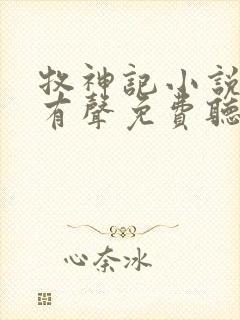 牧神記小說
有聲免費聽
心奈冰